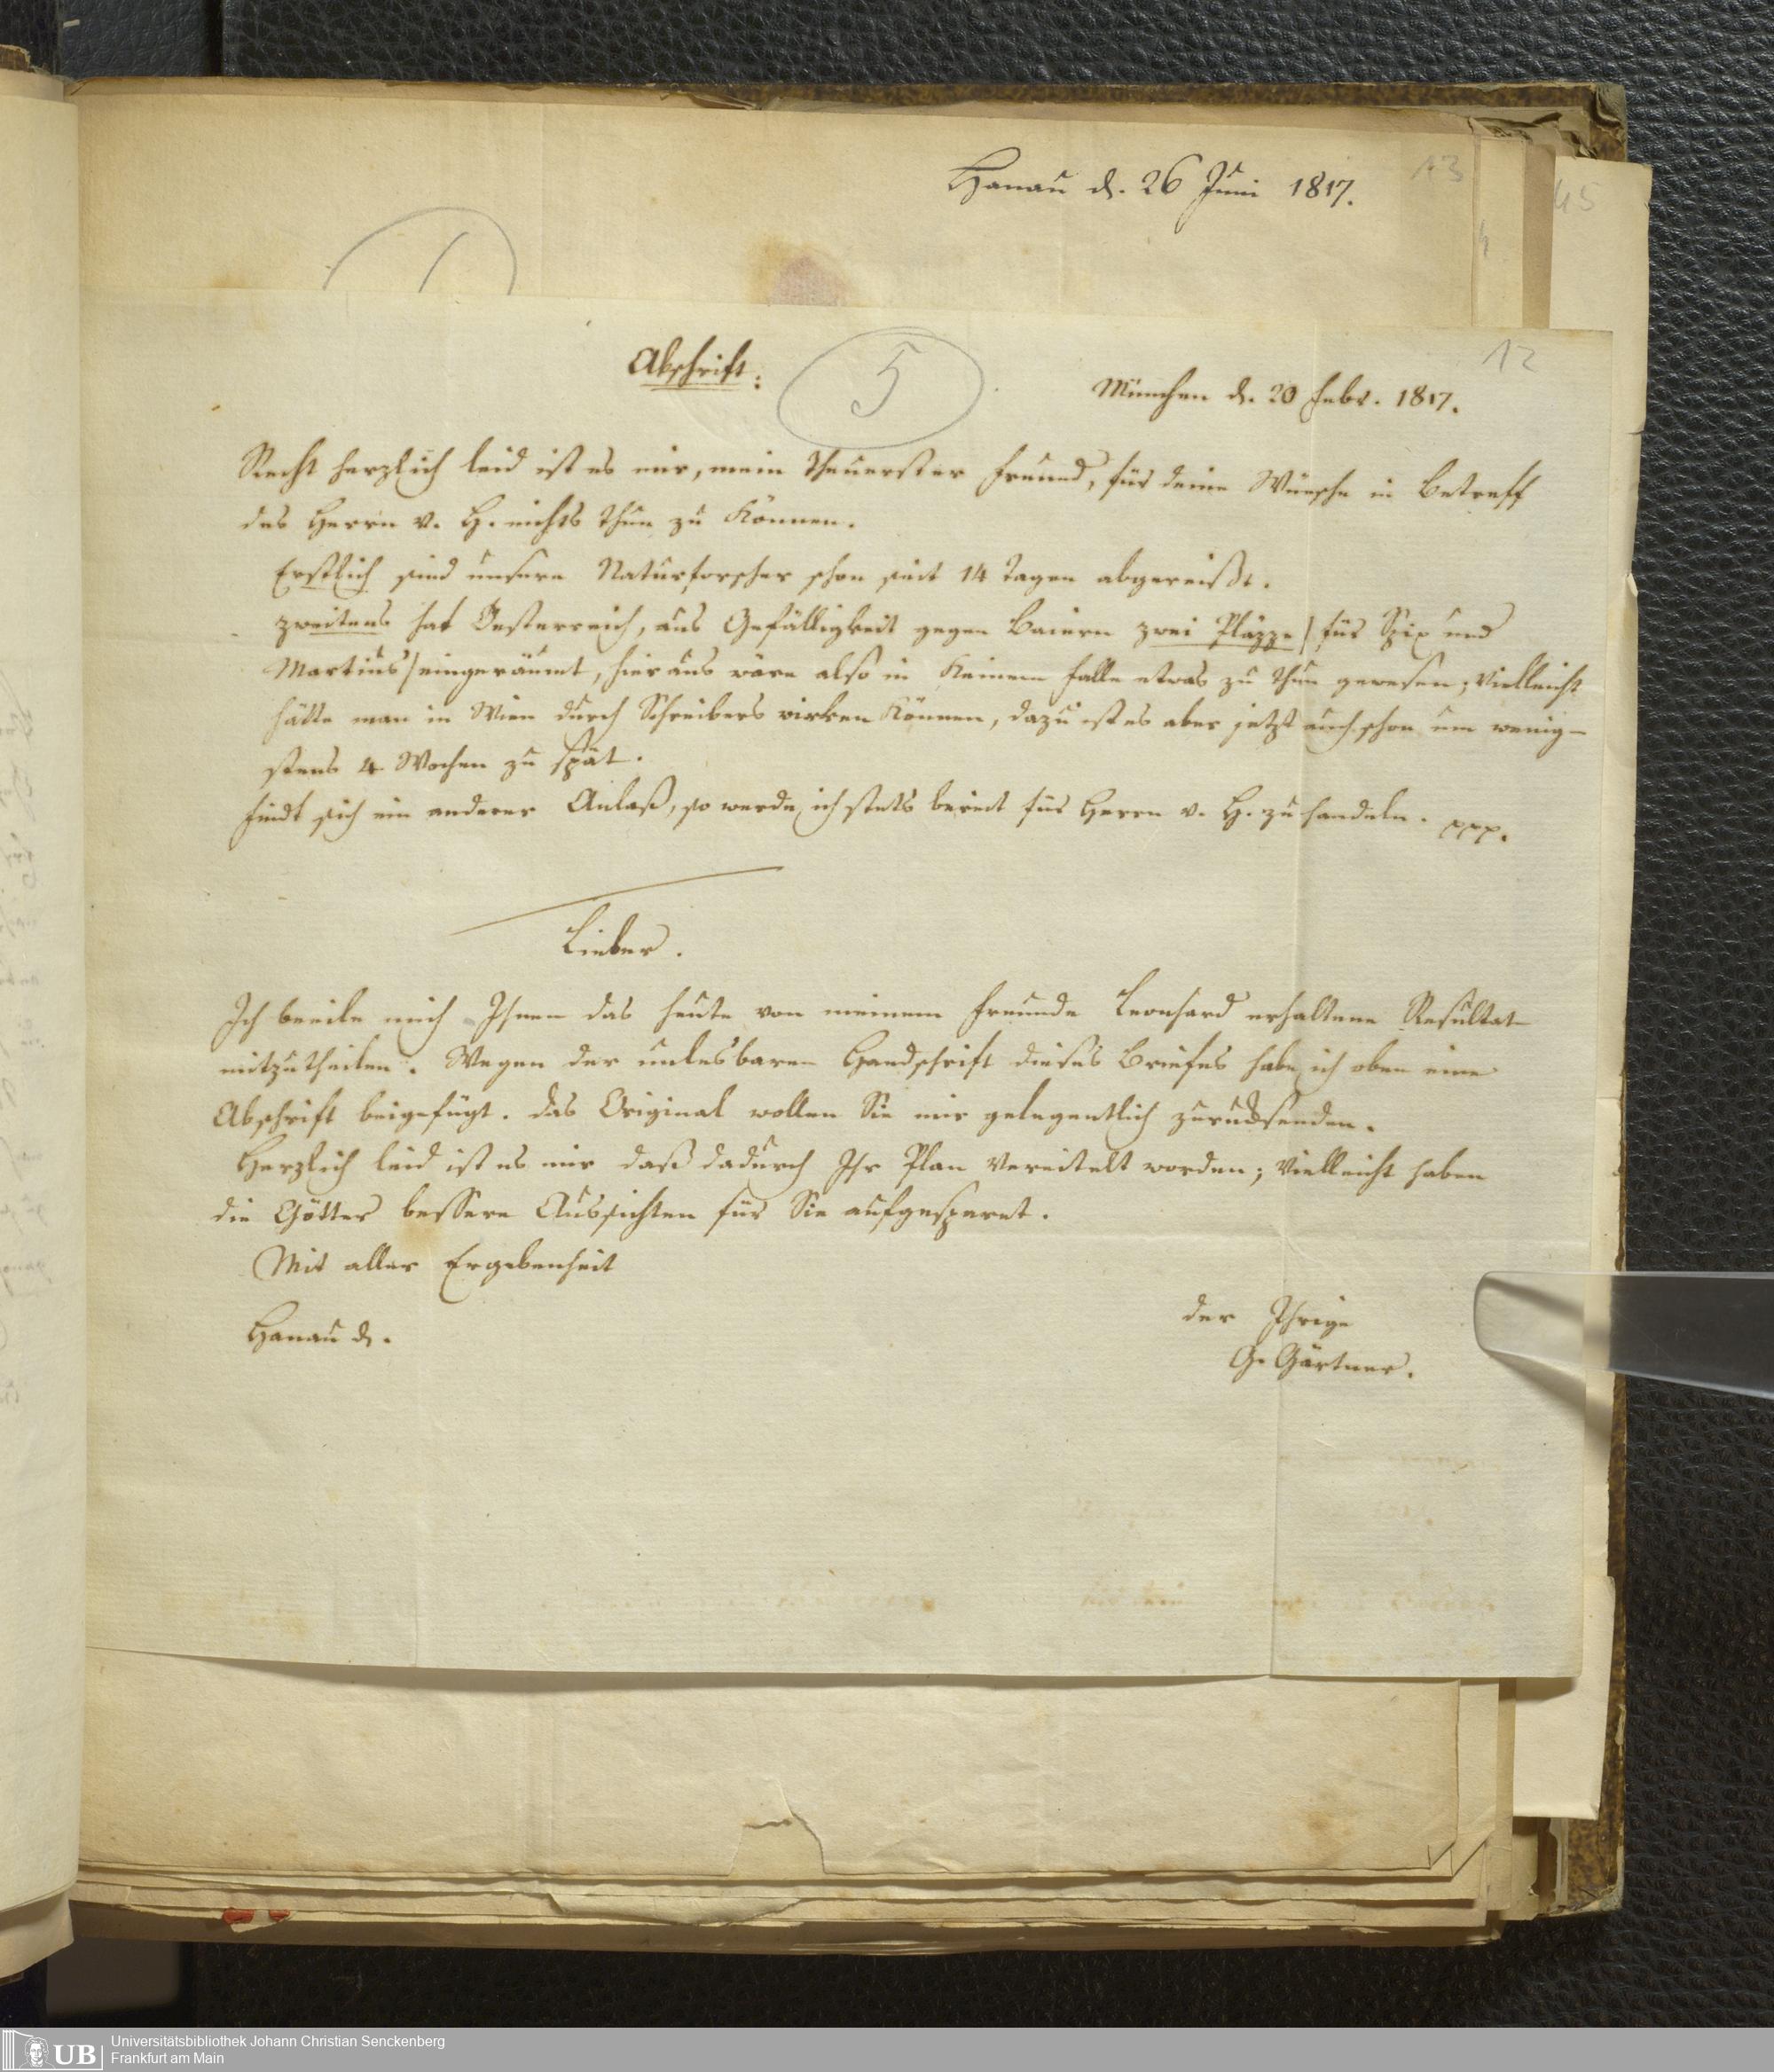 Hanau d. 26 Juni 1817.
13
45
1
Abschrift:
5
12
München d. 20 Febr. 1817.
Recht herzlich leid ist es mir, mein theuerster Freund, für deine Wünsche in Betreff
des Herrn v. H. nichts thun zu können.
Erstlich sind unsere Naturforscher schon seit 14 Tagen abgereißt.
zweitens hat Oesterreich, aus Gefälligkeit gegen Baiern zwei Pläzze / für Spix und
Martius / eingeräumt, hieraus wäre also in keinem Falle etwas zu thun gewesen; vielleicht
hätte man in Wien durch Schreibers wirken können, dazu ist es aber jetzt auch schon um wenig-
stens 4 Wochen zu spät.
Findt sich ein anderer Anlaß, so werde ich stets bereit für Herrn v. H. zu handeln. ppp.
Lieber.
Ich beeile mich Ihnen das heute von meinem Freunde Leonhard erhaltene Resultat
mitzutheilen. Wegen der unlesbaren Handschrift dieses Briefes habe ich oben eine
Abschrift beigefügt. das Original wollen Sie mir gelegentlich zurücksenden.
Herzlich leid ist es mir daß dadurch Ihr Plan vereitelt worden; vielleicht haben
die Götter bessere Aussichten für Sie aufgesparet.
Mit aller Ergebenheit
Hanau d.
der Ihrige
G. Gärtner.
UB
Universitätsbibliothek Johann Christian Senckenberg
Frankfurt am Main